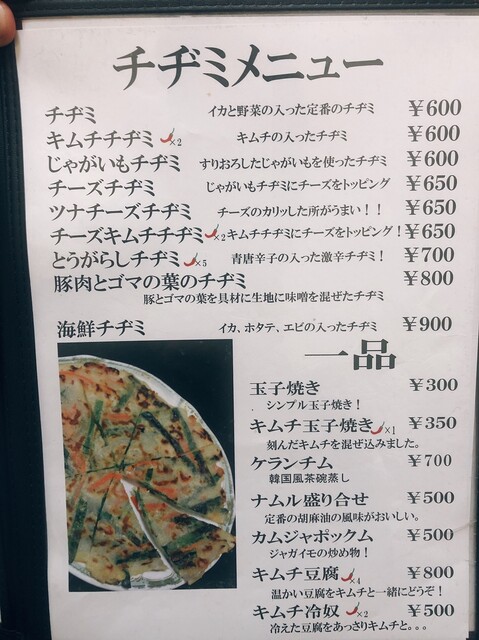 チヂミメニュー
チヂミ イカと野菜の入った定番のチヂミ ¥600
キムチチヂミ ×2 キムチの入ったチヂミ ¥600
じゃがいもチヂミ すりおろしたじゃがいもを使ったチヂミ ¥600
チーズチヂミ じゃがいもチヂミにチーズをトッピング ¥650
ツナチーズチヂミ チーズのカリッした所がうまい！！ ¥650
チーズキムチチヂミ ×2 キムチチヂミにチーズをトッピング！ ¥650
とうがらしチヂミ ×5 青唐辛子の入った激辛チヂミ！ ¥700
豚肉とゴマの葉のチヂミ ¥800
豚とゴマの葉を具材に生地に味噌を混ぜたチヂミ
海鮮チヂミ イカ、ホタテ、エビの入ったチヂミ ¥900
一品
玉子焼き ¥300
シンプル玉子焼き！
キムチ玉子焼き ×1 ¥350
刻んだキムチを混ぜ込みました。
ケランチム ¥700
韓国風茶碗蒸し
ナムル盛り合せ ¥500
定番の胡麻油の風味がおいしい。
カムジャポックム ¥500
ジャガイモの炒め物！
キムチ豆腐 ×4 ¥800
温かい豆腐をキムチと一緒にどうぞ！
キムチ冷奴 ×2 ¥500
冷えた豆腐をあっさりキムチと。。。